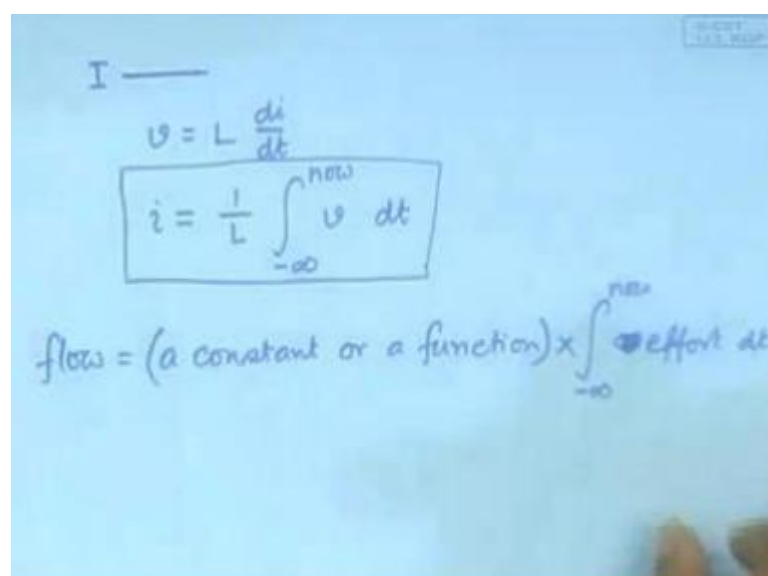 I —
v = L di/dt
i = 1/L ∫_{-∞}^{now} v dt
flow = (a constant or a function) × ∫_{-∞}^{now} effort dt